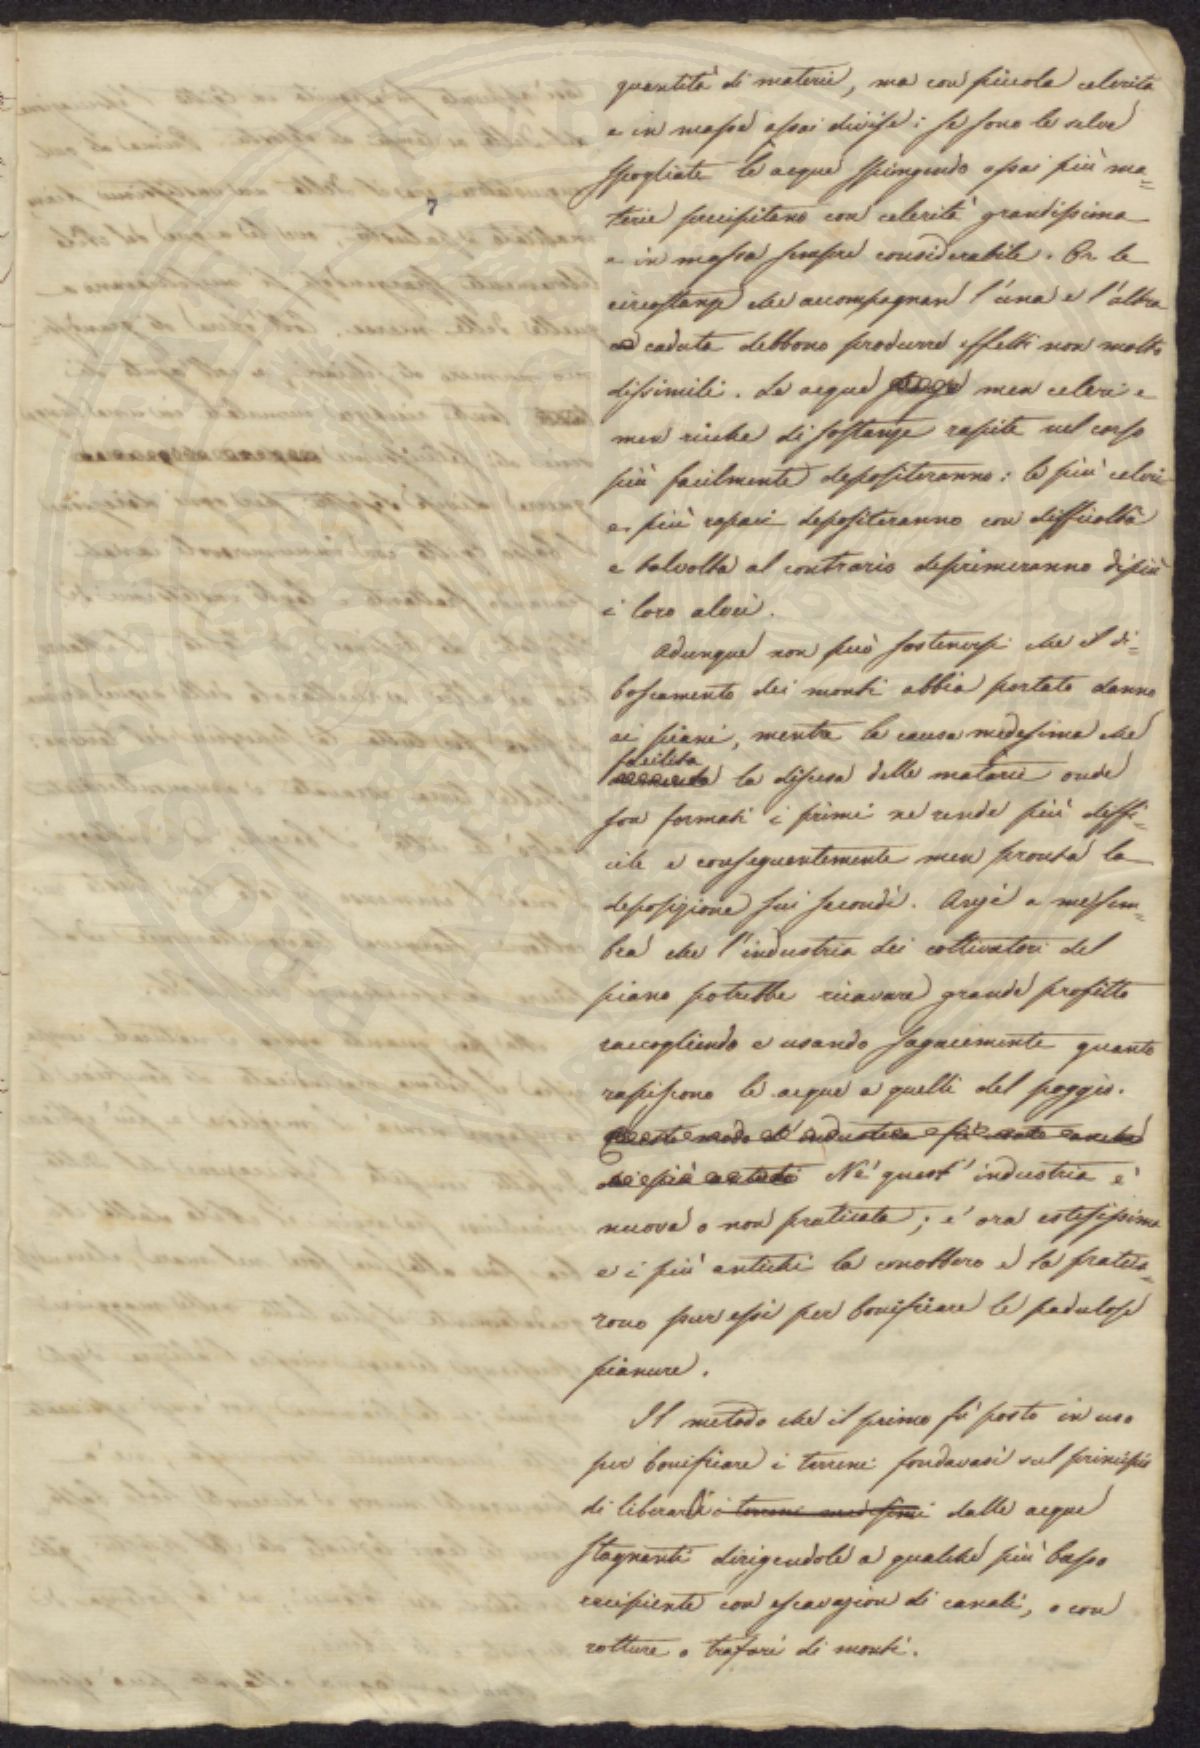 quantità di materie, ma con piccola celerità
e in massa assai divisa: se sono le selve
spogliate le acque spingendo assai più ma=
terie precipitano con celerità grandissima
e in massa sempre considerabile. Or le
circostanze che accompagnan l'una e l'altra
caduta debbono produrre effetti non molto
dissimili. Le acque men celeri e
men ricche di sostanze rapite nel corso
più facilmente depositeranno: le più celeri
e più rapaci depositeranno con difficoltà
e talvolta al contrario deprimeranno dipiù
i loro alvei.
Adunque non può sostenersi che il di=
boscamento dei monti abbia portato danno
ai piani, mentre la causa medesima che
facilita
la discesa delle materie onde
son formati i primi ne rende più diffi=
cile e conseguentemente men pronta la
deposizione sui secondi. Anzi a me sem=
bra che l'industria dei coltivatori del
piano potrebbe ricavare grande profitto
raccogliendo e usando sagacemente quanto
rapiscono le acque a quelli del poggio.
Questo modo d'industria fù usato anche
dai più antichi Nè quest'industria è
nuova o non praticata; è ora estesissima
e i più antichi la conobbero e la pratica=
rono pur essi per bonificare le padulose
pianure.
7
Il metodo che il primo fù posto in uso
per bonificare i terreni fondavasi sul principio
di liberarli i terreni medesimi dalle acque
stagnanti dirigendole a qualche più basso
recipiente con escavazion di canali, o con
rotture o trafori di monti.